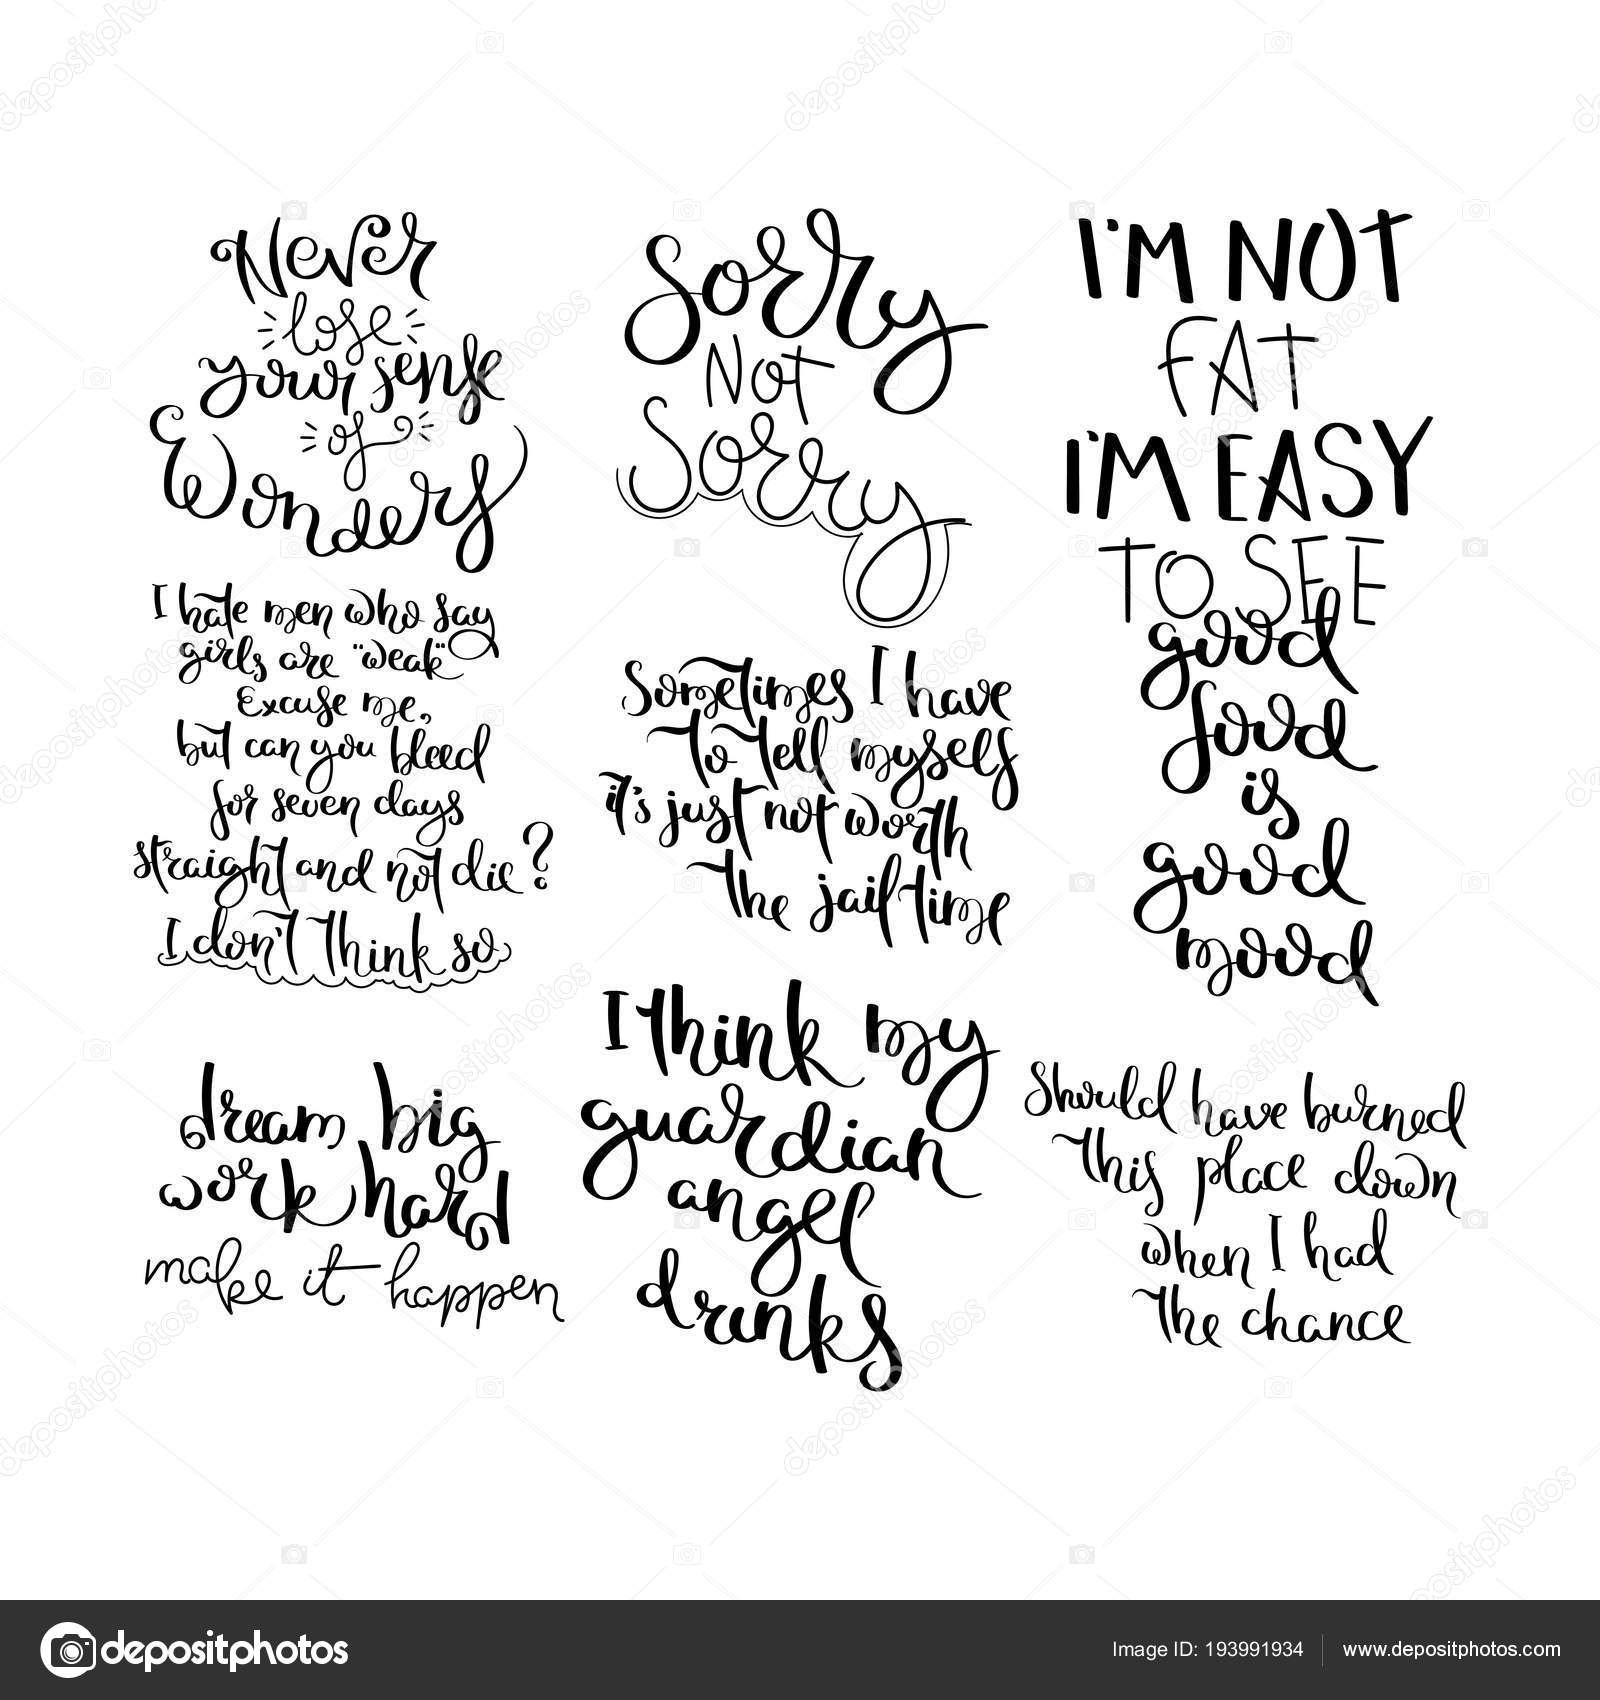 Never
lose
your sense
of
Wonders
I hate men who say
girls are "weak"
Excuse me,
but can you bleed
for seven days
straight and not die?
I don't think so
dream big
work hard
make it happen
Sorry
Not
Sorry
Sometimes I have
to tell myself
it's just not worth
the jail time
I think my
guardian
angel
drinks
I'M NOT
FAT
I'M EASY
TO SEE
good
food
is
good
mood
Should have burned
this place down
when I had
the chance
depositphotos
Image ID: 193991934
www.depositphotos.com